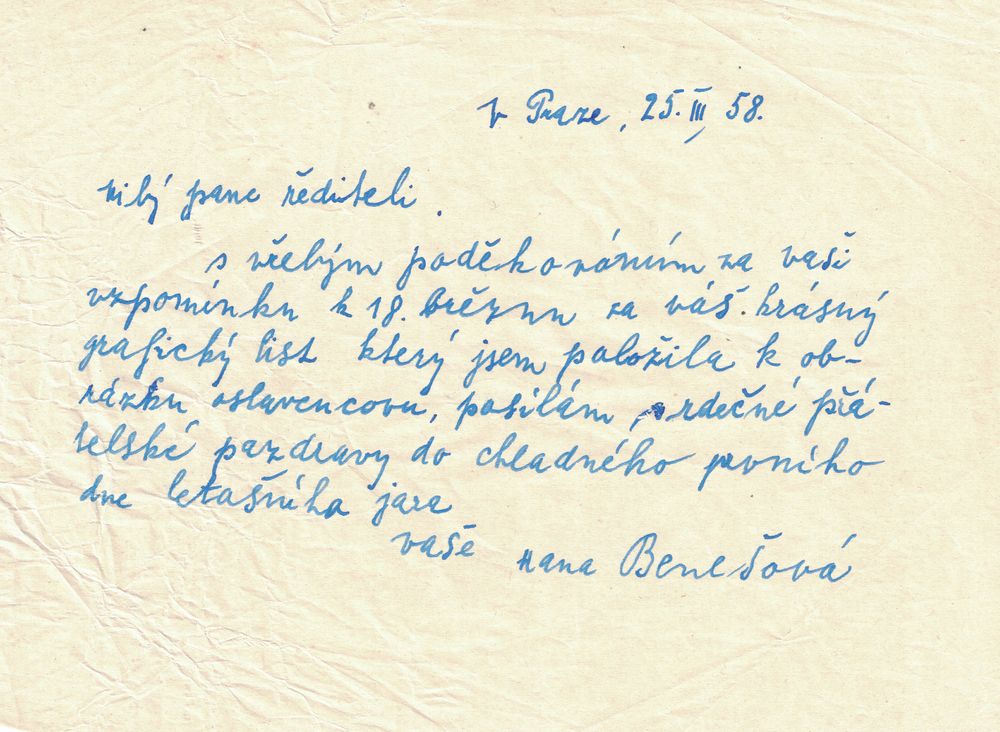 v Praze, 25. III, 58.
milý pane řediteli.
s vřelým poděkováním za vaši
vzpomínku k 18. březnu za váš krásný
grafický list který jsem položila k ob-
rázku oslavencovu, posílám, srdečné přá-
telské pozdravy do chladného prvního
dne letošního jara
vaše Hana Benešová